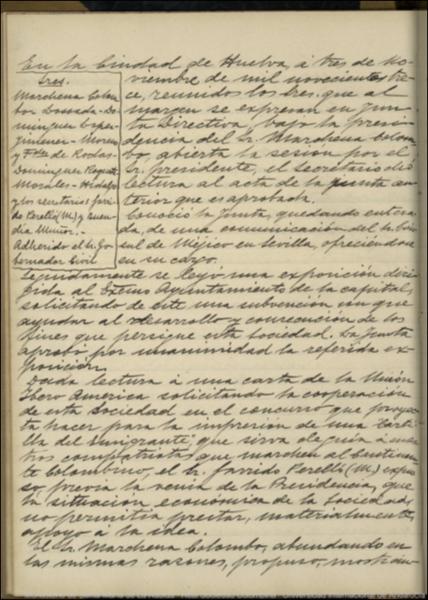 En la Ciudad de Huelva, á tres de No-
viembre de mil novecientos tre-
ce, reunidos los Sres. que al
margen se expresan en Jun-
ta Directiva, bajo la presi-
dencia del Sr. Marchena Colom-
bo, abierta la sesión por el
Sr. presidente, el Secretario dió
lectura al acta de la junta an-
terior que es aprobada.
Sres.
Marchena Colom-
bo-Dousada-Do-
minguez
Jimenez-Moreno
y Fdez de Rodas-
Dominguez Roqueta
Morales-Hidalgo
y los secretarios Garri-
do Perelló (M.) y Buen-
dia Muñoz.-
Adherido el Sr. Go-
bernador Civil
Conoció la Junta, quedando entera-
da, de una comunicación del Sr. Cón-
sul de Méjico en Sevilla, ofreciendose
en su cargo.
Seguidamente se leyó una exposición diri-
gida al Excmo Ayuntamiento de la capital,
solicitando de este una subvención con que
ayudar al desarrollo y consecución de los
fines que persigue esta Sociedad. La Junta
aprobó por unanimidad la referida ex-
posición.
Dada lectura á una carta de la Unión
Ibero America solicitando la cooperación
de esta Sociedad en el concurso que proyec-
ta hacer para la impresión de una "Carti-
lla del Emigrante" que sirva de guía á nues-
tros compatriotas que marchen al Continen-
te Colombino, el Sr. Garrido Perelló (M.) expu-
so, previa la venia de la Presidencia, que
la situación económica de la Sociedad,
no permitia prestar, materialmente,
apoyo a la idea.
El Sr. Marchena Colombo, abundando en
las mismas razones, propuso, mostran-